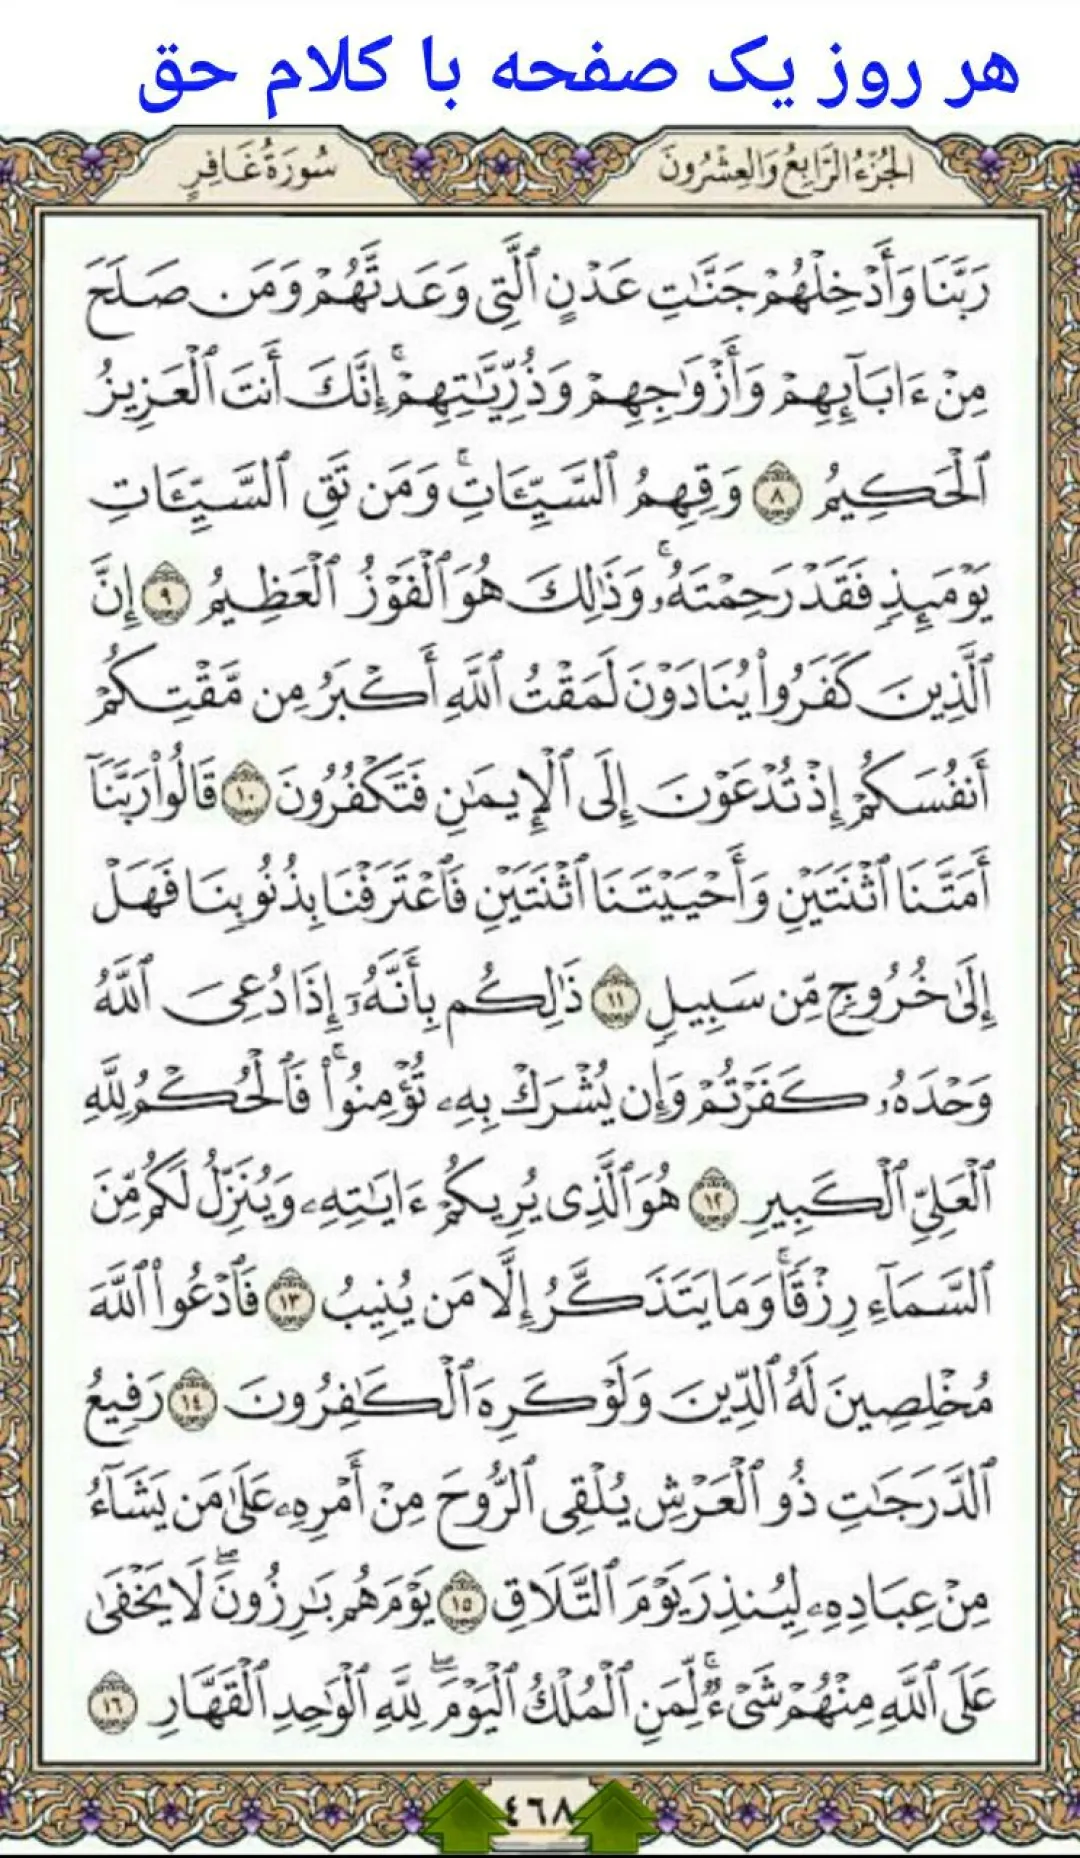 هر روز یک صفحه با کلام حق
الجُزْءُ الرَّابِعُ وَالعِشْرُونَ
سُورَةُ غَافِرٍ
رَبَّنَا وَأَدْخِلْهُمْ جَنَّـٰتِ عَدْنٍ ٱلَّتِى وَعَدتَّهُمْ وَمَن صَلَحَ
مِنْ ءَابَآئِهِمْ وَأَزْوَٰجِهِمْ وَذُرِّيَّـٰتِهِمْ ۚ إِنَّكَ أَنتَ ٱلْعَزِيزُ
ٱلْحَكِيمُ ٨ وَقِهِمُ ٱلسَّيِّـَٔاتِ ۚ وَمَن تَقِ ٱلسَّيِّـَٔاتِ
يَوْمَئِذٍ فَقَدْ رَحِمْتَهُۥ ۚ وَذَٰلِكَ هُوَ ٱلْفَوْزُ ٱلْعَظِيمُ ٩ إِنَّ
ٱلَّذِينَ كَفَرُوا۟ يُنَادَوْنَ لَمَقْتُ ٱللَّهِ أَكْبَرُ مِن مَّقْتِكُمْ
أَنفُسَكُمْ إِذْ تُدْعَوْنَ إِلَى ٱلْإِيمَـٰنِ فَتَكْفُرُونَ ١٠ قَالُوا۟ رَبَّنَآ
أَمَتَّنَا ٱثْنَتَيْنِ وَأَحْيَيْتَنَا ٱثْنَتَيْنِ فَٱعْتَرَفْنَا بِذُنُوبِنَا فَهَلْ
إِلَىٰ خُرُوجٍ مِّن سَبِيلٍ ١١ ذَٰلِكُم بِأَنَّهُۥٓ إِذَا دُعِىَ ٱللَّهُ
وَحْدَهُۥ كَفَرْتُمْ وَإِن يُشْرَكْ بِهِۦ تُؤْمِنُوا۟ ۚ فَٱلْحُكْمُ لِلَّهِ
ٱلْعَلِىِّ ٱلْكَبِيرِ ١٢ هُوَ ٱلَّذِى يُرِيكُمْ ءَايَـٰتِهِۦ وَيُنَزِّلُ لَكُم مِّنَ
ٱلسَّمَآءِ رِزْقًا ۚ وَمَا يَتَذَكَّرُ إِلَّا مَن يُنِيبُ ١٣ فَٱدْعُوا۟ ٱللَّهَ
مُخْلِصِينَ لَهُ ٱلدِّينَ وَلَوْ كَرِهَ ٱلْكَـٰفِرُونَ ١٤ رَفِيعُ
ٱلدَّرَجَـٰتِ ذُو ٱلْعَرْشِ يُلْقِى ٱلرُّوحَ مِنْ أَمْرِهِۦ عَلَىٰ مَن يَشَآءُ
مِنْ عِبَادِهِۦ لِيُنذِرَ يَوْمَ ٱلتَّلَاقِ ١٥ يَوْمَ هُم بَـٰرِزُونَ ۖ لَا يَخْفَىٰ
عَلَى ٱللَّهِ مِنْهُمْ شَىْءٌ ۚ لِّمَنِ ٱلْمُلْكُ ٱلْيَوْمَ ۖ لِلَّهِ ٱلْوَٰحِدِ ٱلْقَهَّارِ ١٦
٤٦٨